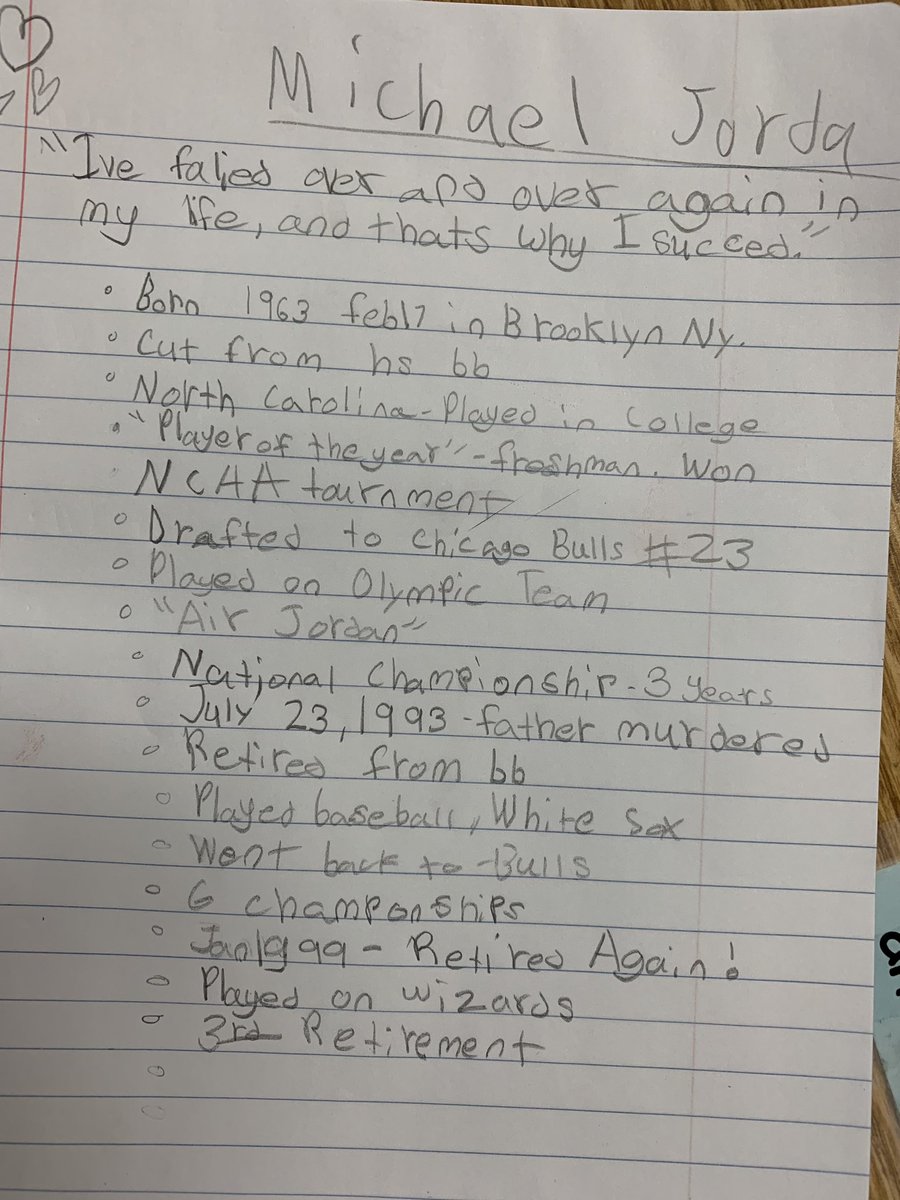 Michael Jorda
"Ive falied over and over again in
my life, and thats why I succed."
◦ Born 1963 feb17 in Brooklyn Ny.
◦ Cut from hs bb
◦ North Carolina - Played in College
◦ "Player of the year" - freshman. Won
NCAA tournment
◦ Drafted to Chicago Bulls #23
◦ Played on Olympic Team
◦ "Air Jordan"
◦ National Championship - 3 years
◦ July 23, 1993 - father murdered
◦ Retired from bb
◦ Played baseball, White Sox
◦ Went back to - Bulls
◦ 6 champonships
◦ Jan1999 - Retired Again!
◦ Played on wizards
◦ 3rd Retirement